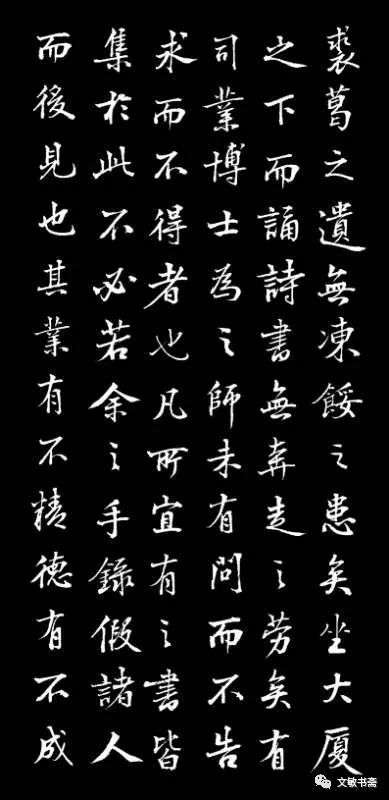 裘葛之遺無凍餒之患矣坐大厦
之下而誦詩書無奔走之劳矣有
司業博士為之師未有問而不告
求而不得者也凡所宜有之書皆
集於此不必若余之手錄假諸人
而後見也其業有不精德有不成
文敏书斋